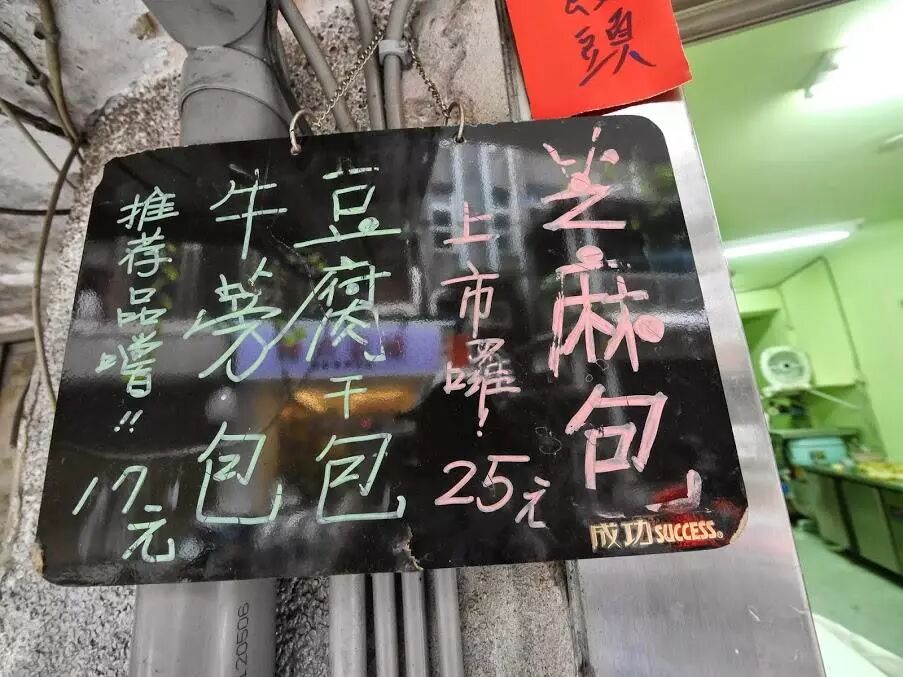 頭
芝麻包
上市囉！
25元
豆腐干包
牛蒡包
推荐品嚐！！
17元
成功SUCCESS®
120506